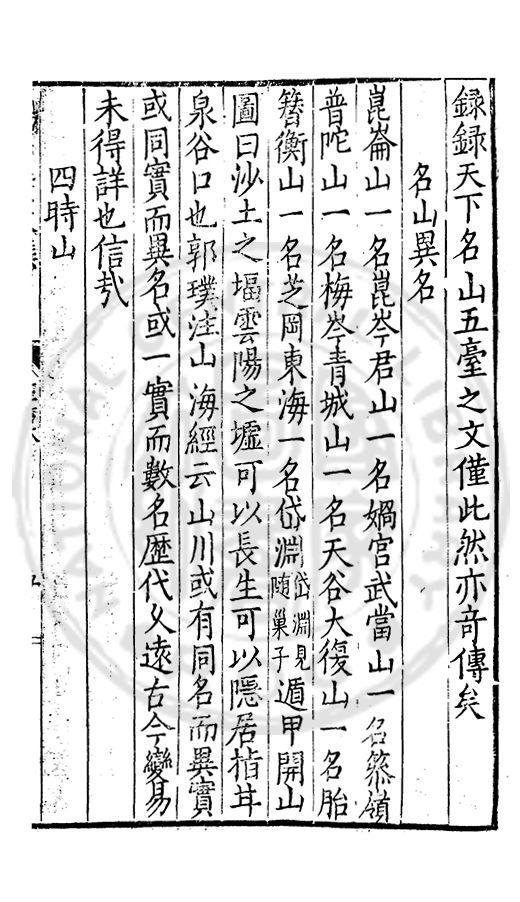 録録天下名山五臺之文僅此然亦奇傳矣
名山異名
崑崙山一名崑岑君山一名媧宮武當山一名篸嶺
普陀山一名梅岑青城山一名天谷大復山一名胎
簪衡山一名芝岡東海一名岱淵岱淵見随巢子遁甲開山
圖曰沙土之堛雲陽之墟可以長生可以隱居指茸
泉谷口也郭璞注山海經云山川或有同名而異實
或同實而異名或一實而數名歴代乆遠古今變易
未得詳也信㢤
四時山